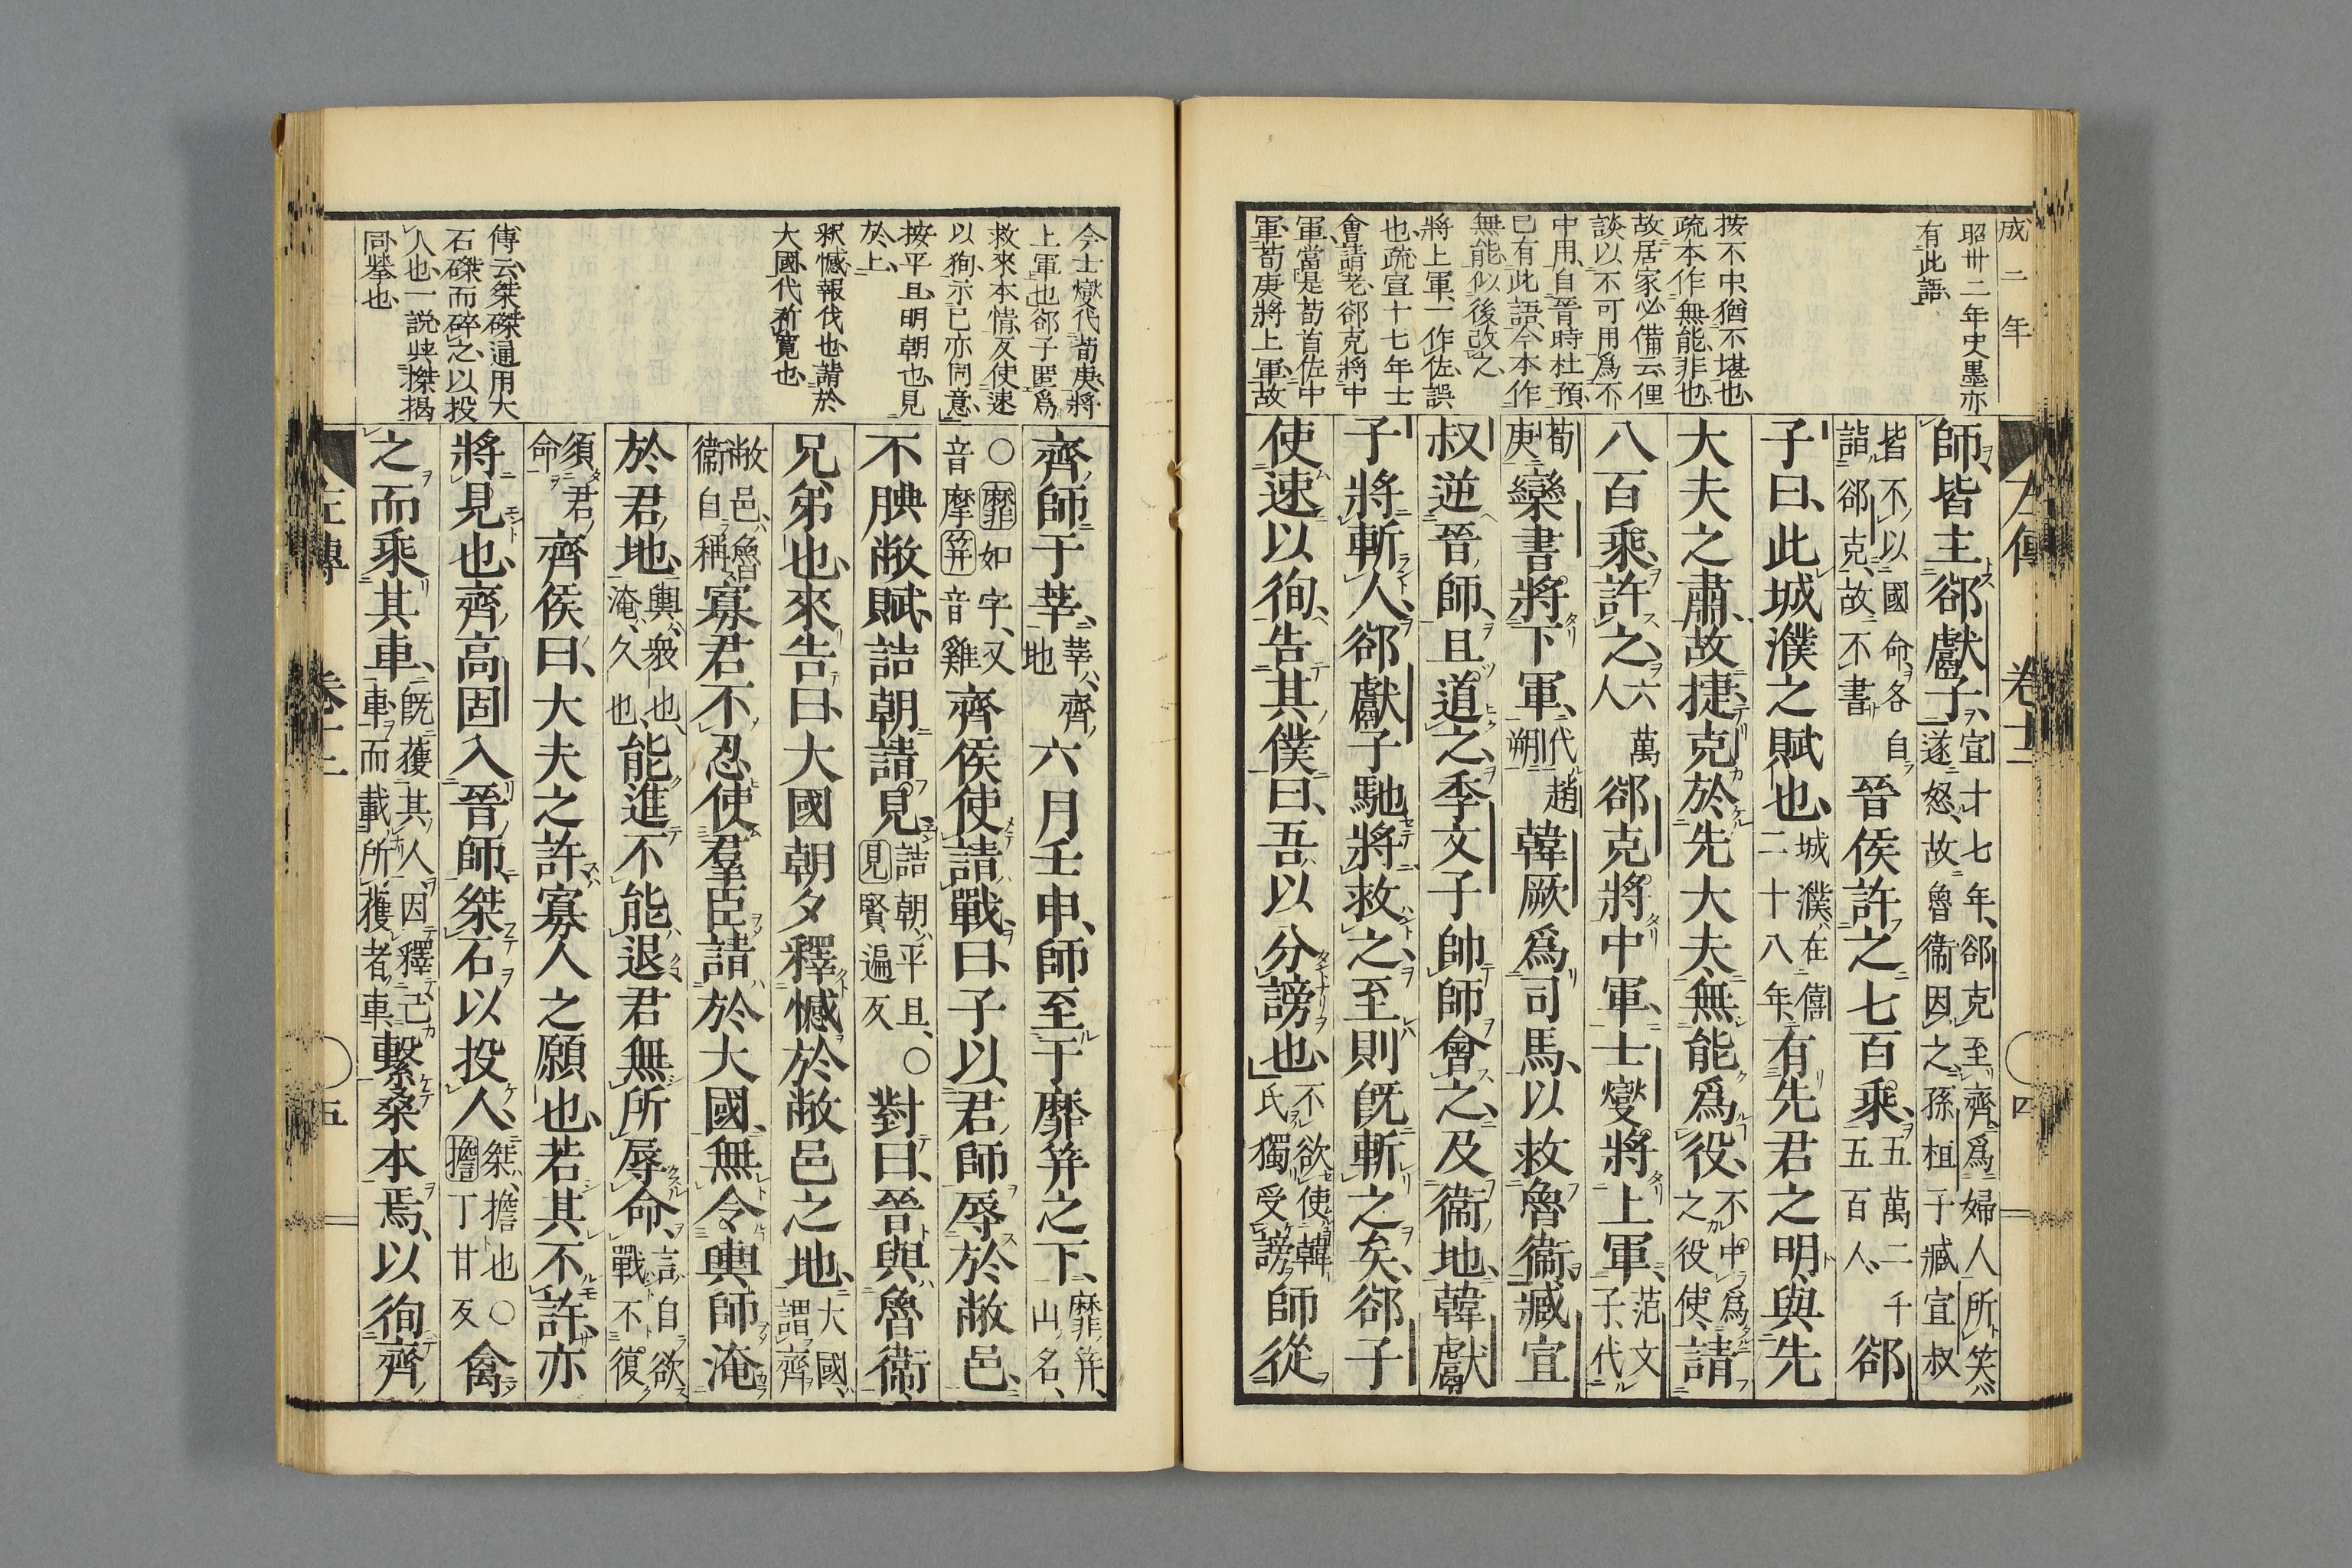 成二年
昭卅二年史墨亦
有此語
按不中猶不堪也
疏本作無能非也
故居家必備云俚
談以不可用爲不
中用自晉時杜預
已有此語今本作
無能似後改之
將上軍一作佐誤
也疏宣十七年士
會請老郤克將中
軍當是荀首佐中
軍荀庚將上軍故
師皆主郤獻子宣十七年郤克至齊爲婦人所笑遂怒故魯衞因之孫桓子臧宣叔
皆不以國命各自詣郤克故不書晉侯許之七百乘五萬二千五百人郤
子曰此城濮之賦也城濮在僖二十八年有先君之明與先
大夫之肅故捷克於先大夫無能爲役不中爲之役使請
八百乘許之六萬人郤克將中軍士燮將上軍范文子代
荀庚欒書將下軍代趙朔韓厥爲司馬以救魯衞臧宣
叔逆晉師且道之季文子帥師會之及衞地韓獻
子將斬人郤獻子馳將救之至則既斬之矣郤子
使速以徇告其僕曰吾以分謗也不欲使韓氏獨受謗師從
左傳 卷十二 四
今士燮代荀庚將
上軍也郤子匿爲
救來本情反使速
以狥示已亦同意
按平旦明朝也見
於上
釈憾報伐也請於
大國代祈寬也
傳云桀磔通用大
石磔而碎之以投
人也一説桀揭
同挙也
齊師于莘莘齊地六月壬申師至于靡笄之下靡笄山名
○靡如字又音摩笄音雞齊侯使請戰曰子以君師辱於敝邑
不腆敝賦詰朝請見詰朝平旦○見賢遍反對曰晉與魯衞
兄弟也來告曰大國朝夕釋憾於敝邑之地大國謂齊
敝邑魯衞自稱寡君不忍使羣臣請於大國無令輿師淹
於君地輿衆也淹久也能進不能退君無所辱命言自欲戰不復
須君命齊侯曰大夫之許寡人之願也若其不許亦
將見也齊高固入晉師桀石以投人桀擔也○擔丁甘反禽
之而乘其車既獲其人因釋己車而載所獲者車繫桑本焉以徇齊
左傳 卷十二 五